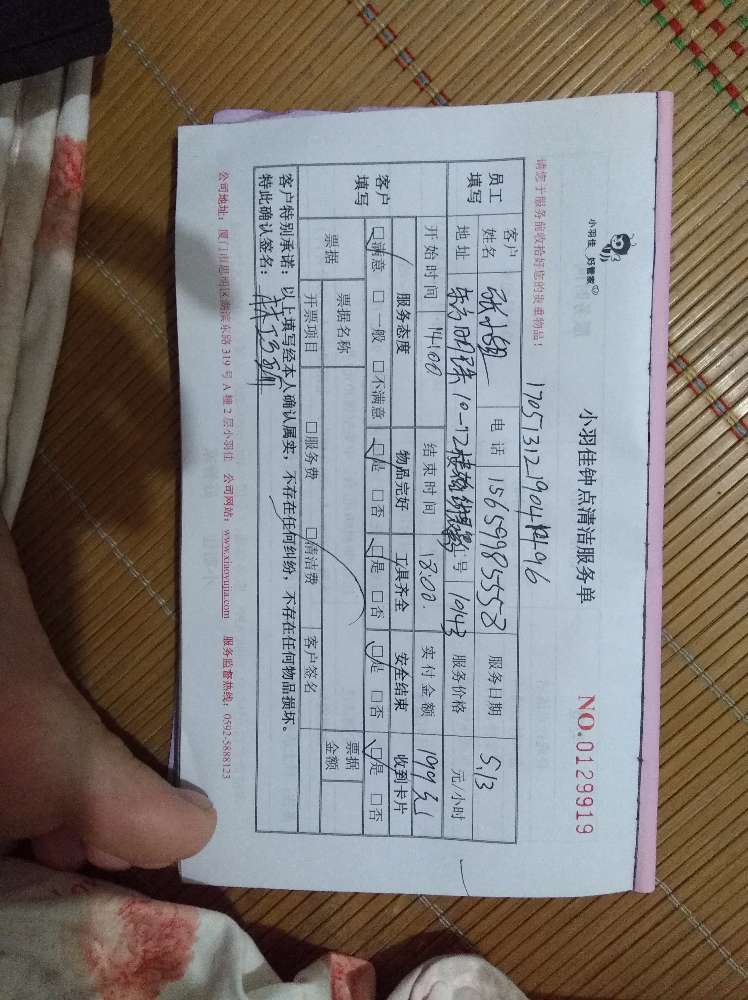 小羽佳 好管家
小羽佳钟点清洁服务单
NO.0129919
请您于服务前收拾好您的贵重物品！
员工填写 客户姓名 电话 15659985558 服务日期 5.13
地址 东方明珠 号 1043 服务价格 元/小时
开始时间 14:00 结束时间 18:00. 实付金额
客户填写 服务态度 物品完好 工具齐全 安全结束 收到卡片
☑满意 □一般 □不满意 ☑是 □否 ☑是 □否 ☑是 □否 ☑是 □否
票据 票据名称 票据金额
开票项目 □服务费 □清洁费 客户签名
客户特别承诺：以上填写经本人确认属实，不存在任何纠纷，不存在任何物品损坏。
特此确认签名：
公司地址：厦门市思明区湖滨东路 319 号 A 幢 2 层小羽佳 公司网站：www.xiaoyujia.com 服务监督热线：0592-5888123